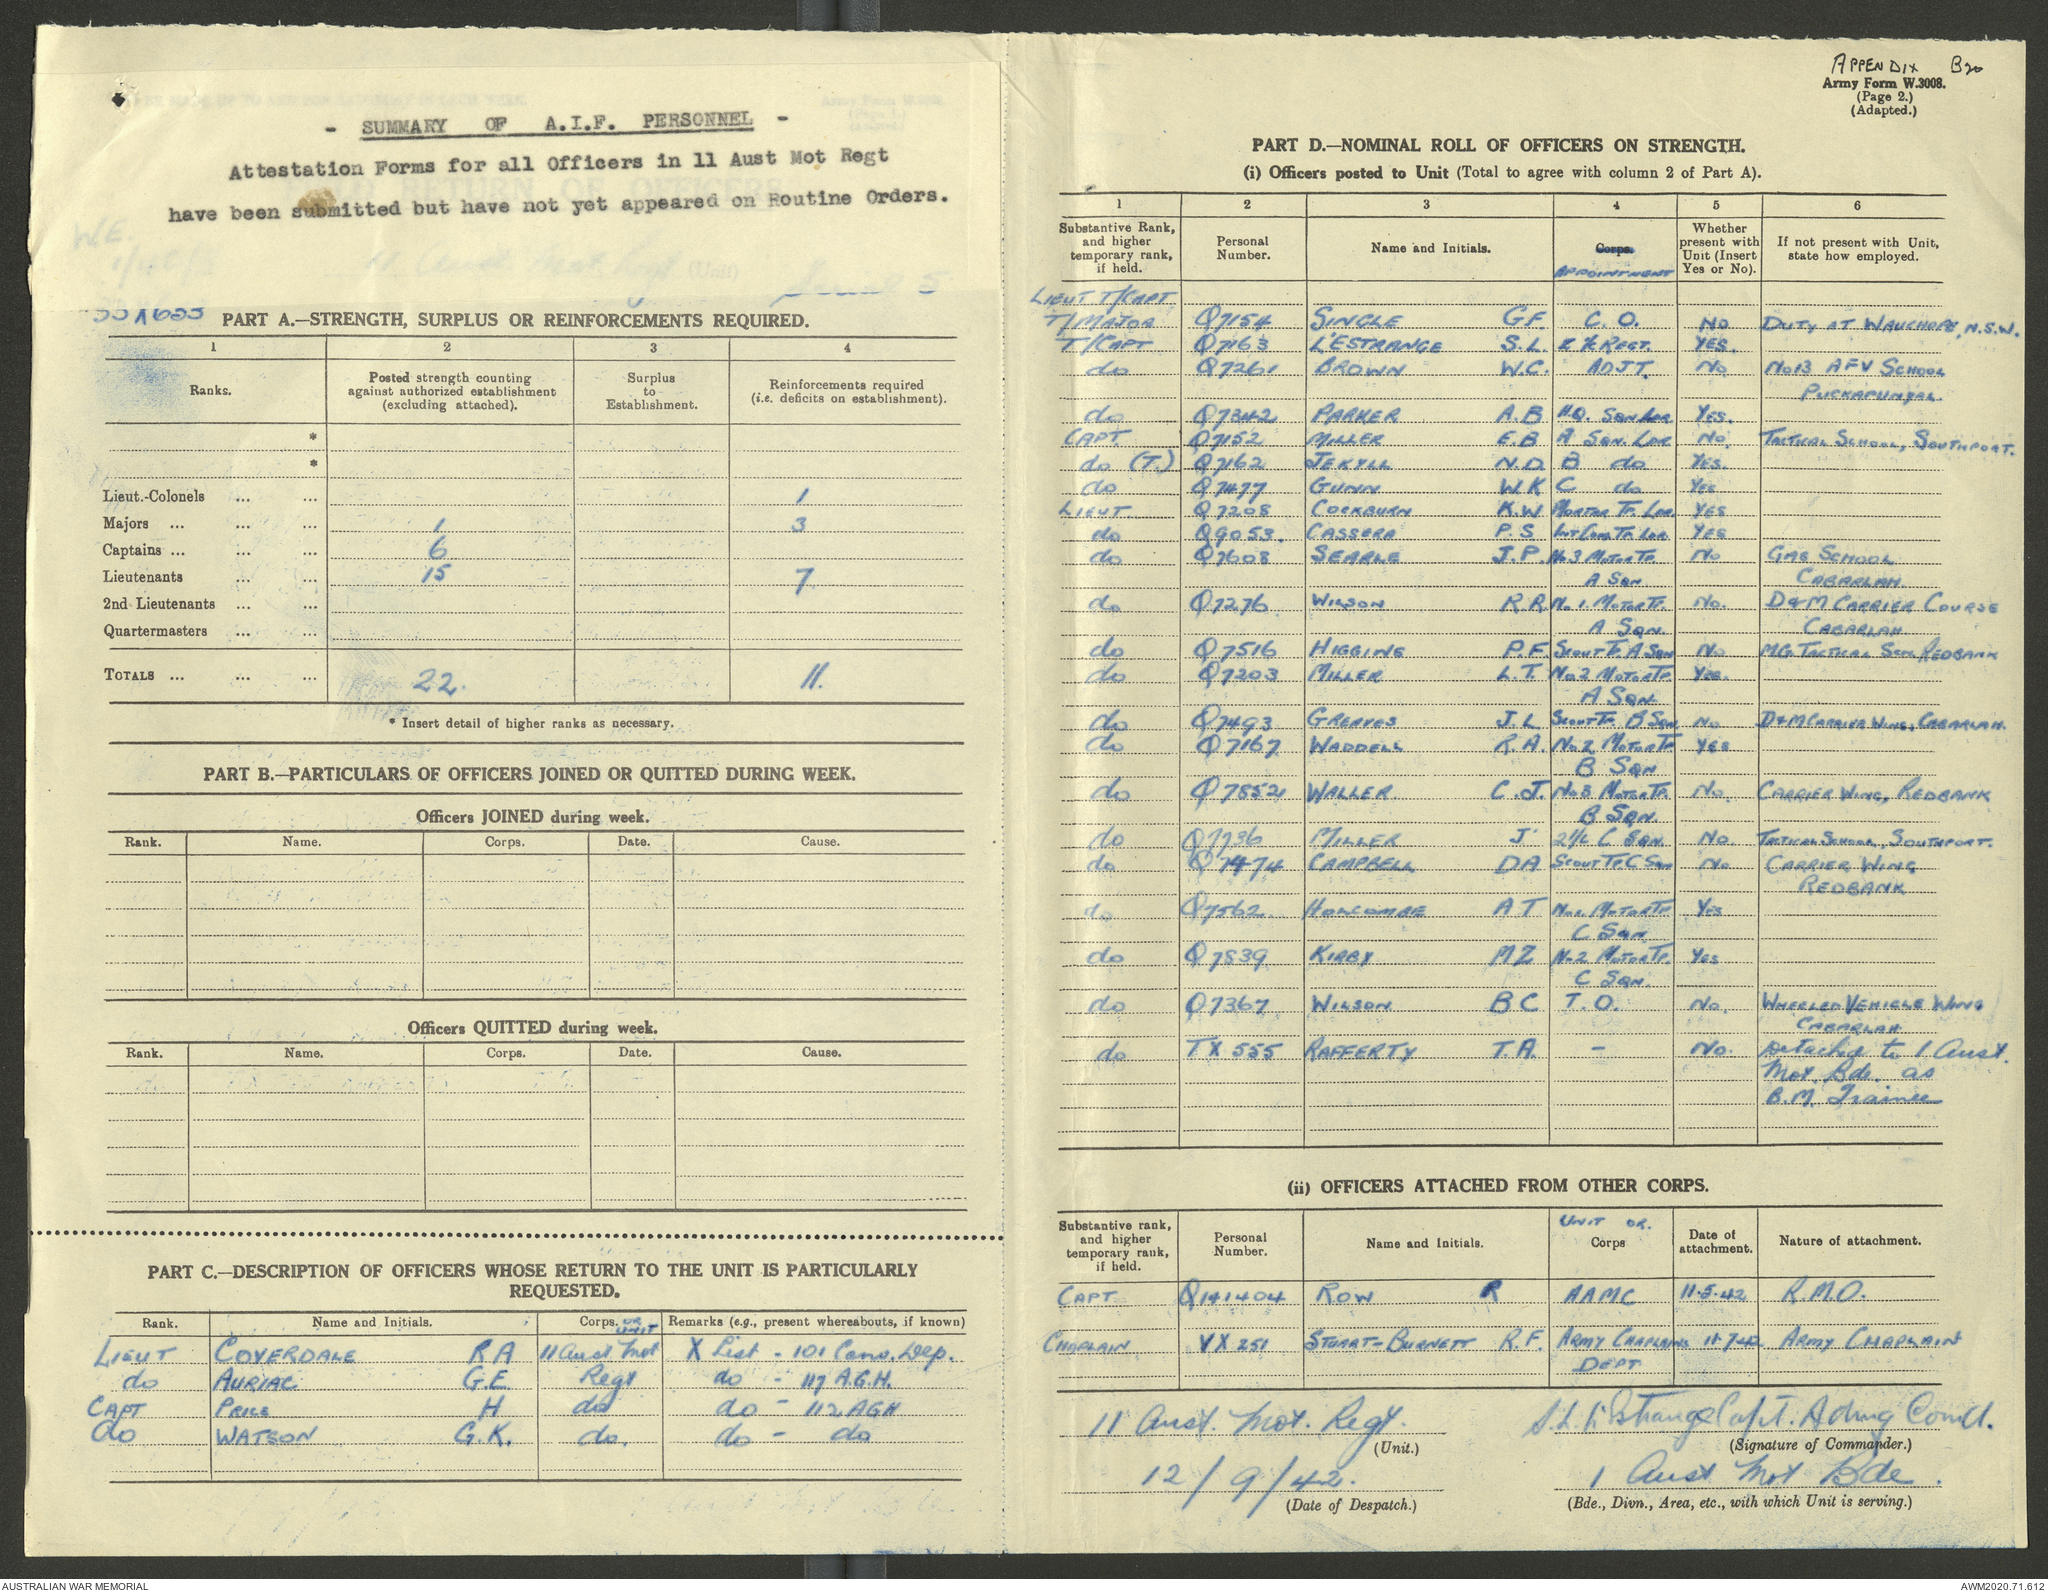 - SUMMARY OF A.I.F. PERSONNEL -
Attestation Forms for all Officers in 11 Aust Mot Regt
have been submitted but have not yet appeared on Routine Orders.
W.E.
(Unit)
PART A.—STRENGTH, SURPLUS OR REINFORCEMENTS REQUIRED.
1 2 3 4
Ranks. Posted strength counting against authorized establishment (excluding attached). Surplus to Establishment. Reinforcements required (i.e. deficits on establishment).
*
*
Lieut.-Colonels ... ... 1
Majors ... ... ... 1 3
Captains ... ... ... 6
Lieutenants ... ... 15 7
2nd Lieutenants ... ...
Quartermasters ... ...
TOTALS ... ... ... 22. 11.
* Insert detail of higher ranks as necessary.
PART B.—PARTICULARS OF OFFICERS JOINED OR QUITTED DURING WEEK.
Officers JOINED during week.
Rank. Name. Corps. Date. Cause.
Officers QUITTED during week.
Rank. Name. Corps. Date. Cause.
PART C.—DESCRIPTION OF OFFICERS WHOSE RETURN TO THE UNIT IS PARTICULARLY
REQUESTED.
Rank. Name and Initials. Corps. OR UNIT Remarks (e.g., present whereabouts, if known)
LIEUT COVERDALE RA 11 Aust Mot X List - 101 Conv. Dep.
do AURIAC G.E Regt do - 117 A.G.H.
CAPT PRICE H do do - 112 AGH
do WATSON G.K. do. do - do
APPENDIX B20
Army Form W.3008.
(Page 2.)
(Adapted.)
PART D.—NOMINAL ROLL OF OFFICERS ON STRENGTH.
(i) Officers posted to Unit (Total to agree with column 2 of Part A).
1 2 3 4 5 6
Substantive Rank, and higher temporary rank, if held. Personal Number. Name and Initials. Corps. APPOINTMENT Whether present with Unit (Insert Yes or No). If not present with Unit, state how employed.
LIEUT T/CAPT
T/MAJOR Q7154 SINGLE G.F. C.O. NO DUTY AT WAUCHOPE, N.S.W.
T/CAPT Q7163 L'ESTRANGE S.L. 2 I/C REGT. YES.
do Q7261 BROWN W.C. ADJT. No. No 13 AFV SCHOOL
PUCKAPUNYAL
do Q7342 PARKER A.B H.Q. SQN LDR YES.
CAPT Q7152 MILLER E.B A SQN. LDR No. TACTICAL SCHOOL, SOUTHPORT.
do (T.) Q7162 JEKYLL N.D. B do YES.
do Q7477 GUNN W.K C do YES
LIEUT Q7208 COCKBURN K.W. MORTAR TP. LDR YES
do Q9053. CASSERA P.S INT COM. TP. LDR YES
do Q7608 SEARLE J.P. No 3 MOTOR TP. No GAS SCHOOL
A SQN CABARLAH
do Q7276 WILSON R.R. No. 1. MOTOR TP. No. D&M CARRIER COURSE
A SQN. CABARLAH
do Q7516 HIGGINS P.F. SCOUT TP. A SQN No MG. TACTICAL SCH. REDBANK
do Q7203 MILLER L.T. No. 2 MOTOR TP. YES.
A SQN.
do Q7493 GREAVES J.L SCOUT TP. B SQN No D&M CARRIER WING, CABARLAH.
do Q7167 WADDELL R.A. No. 2 MOTOR TP YES
B SQN
do Q7852 WALLER C.J. No 3 MOTOR TP. No. CARRIER WING, REDBANK
B SQN.
do Q7736 MILLER J 2 I/C C SQN. No TACTICAL SCHOOL, SOUTHPORT.
do Q7474 CAMPBELL DA SCOUT TP. C SQN No CARRIER WING
REDBANK
do Q7562 HOLCOMBE A T No. 1 MOTOR TP YES
C SQN
do Q7839 KIRBY MZ No. 2 MOTOR TP. YES
C SQN.
do Q7367 WILSON BC T.O. No. WHEELED VEHICLE WING
CABARLAH
do TX 555 RAFFERTY T.A. - No. Detached to 1 Aust.
Mot. Bde. as
B.M. Trainee
(ii) OFFICERS ATTACHED FROM OTHER CORPS.
Substantive rank, and higher temporary rank, if held. Personal Number. Name and Initials. UNIT OR Corps Date of attachment. Nature of attachment.
CAPT Q141404 ROW R AAMC 11.5.42 R.M.O.
CHAPLAIN VX 251 STUART-BURNETT R.F. ARMY CHAPLAINS 11.7.42 ARMY CHAPLAIN
DEPT
11 Aust. Mot. Regt. S.L. L'Estrange Capt. Admg Comd.
(Unit.) (Signature of Commander.)
12/9/42. 1 Aust Mot Bde.
(Date of Despatch.) (Bde., Divn., Area, etc., with which Unit is serving.)
AUSTRALIAN WAR MEMORIAL AWM2020.71.612